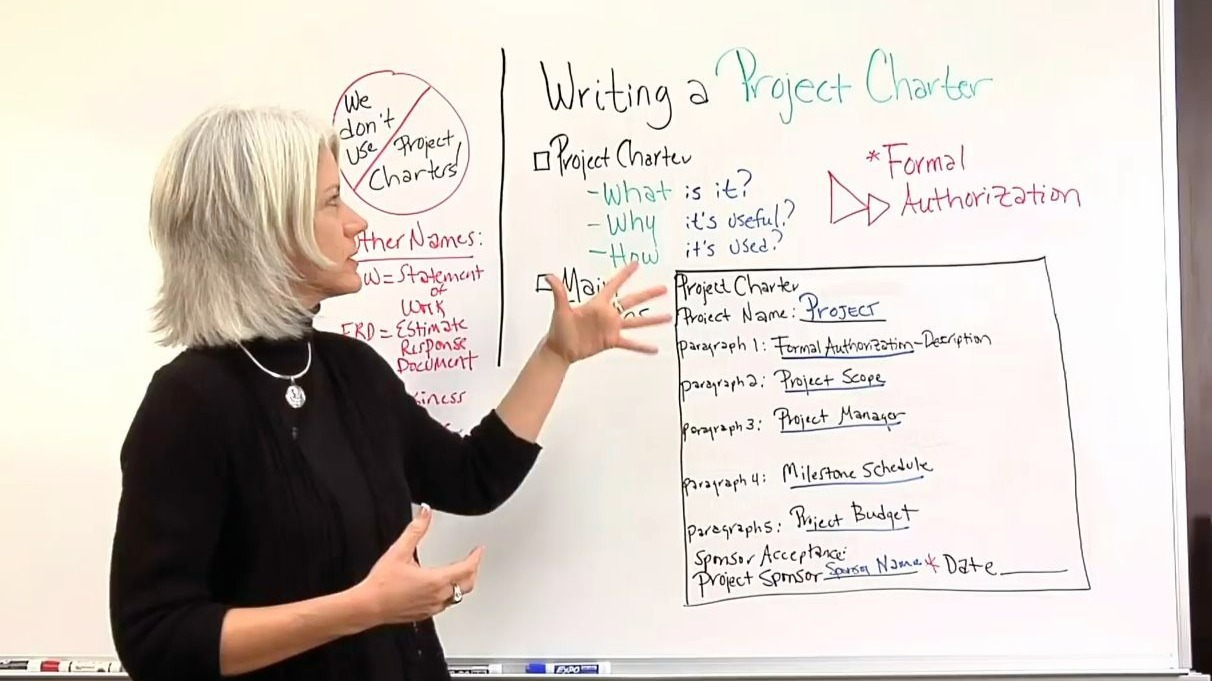 We
don't
use
Project
Charters!
Other Names:
= Statement
of
Work
ERD = Estimate
Response
Document
Writing a Project Charter
Project Charter
- What is it?
- Why it's useful?
- How it's used?
* Formal
Authorization
Project Charter
Project Name: PROJECT
Paragraph 1: Formal Authorization - Decription
paragraph 2: Project Scope
paragraph 3: Project Manager
paragraph 4: Milestone Schedule
paragraph 5: Project Budget
Sponsor Acceptance:
Project Sponsor Sponsor Name * Date
EXPO